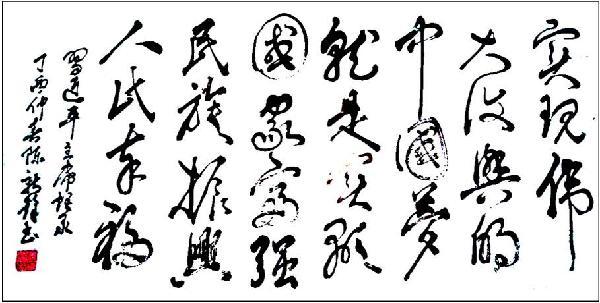 实现伟
大復興的
中國梦
就是实现
國家富强
民族振興
人民幸福
習近平主席语录
丁酉仲春陈书